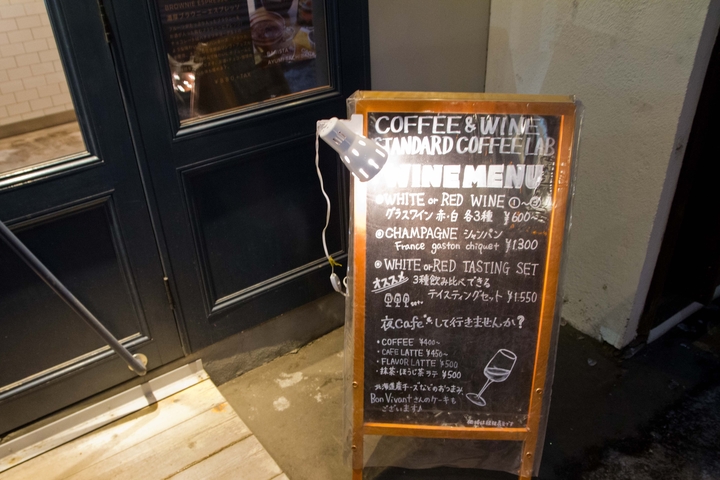 COFFEE & WINE
STANDARD COFFEE LAB
WINE MENU
WHITE or RED WINE
グラスワイン 赤・白 各3種 ¥600~
CHAMPAGNE シャンパン
France gaston chiquet ¥1,300
WHITE or RED TASTING SET
オススメ 3種飲み比べできる
テイスティングセット ¥1,550
夜cafeして行きませんか?
・COFFEE ¥400~
・CAFE LATTE ¥450~
・FLAVOR LATTE ¥500
・抹茶・ほうじ茶ラテ ¥500
北海道産チーズなどのおつまみ
Bon Vivantさんのケーキも
ございます♪